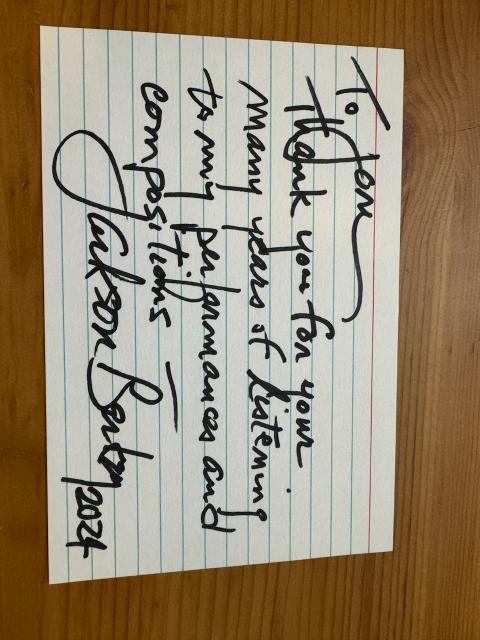 To Tom
Thank you for your
many years of listening
to my performances and
compositions —
Jackson Berkey 2024